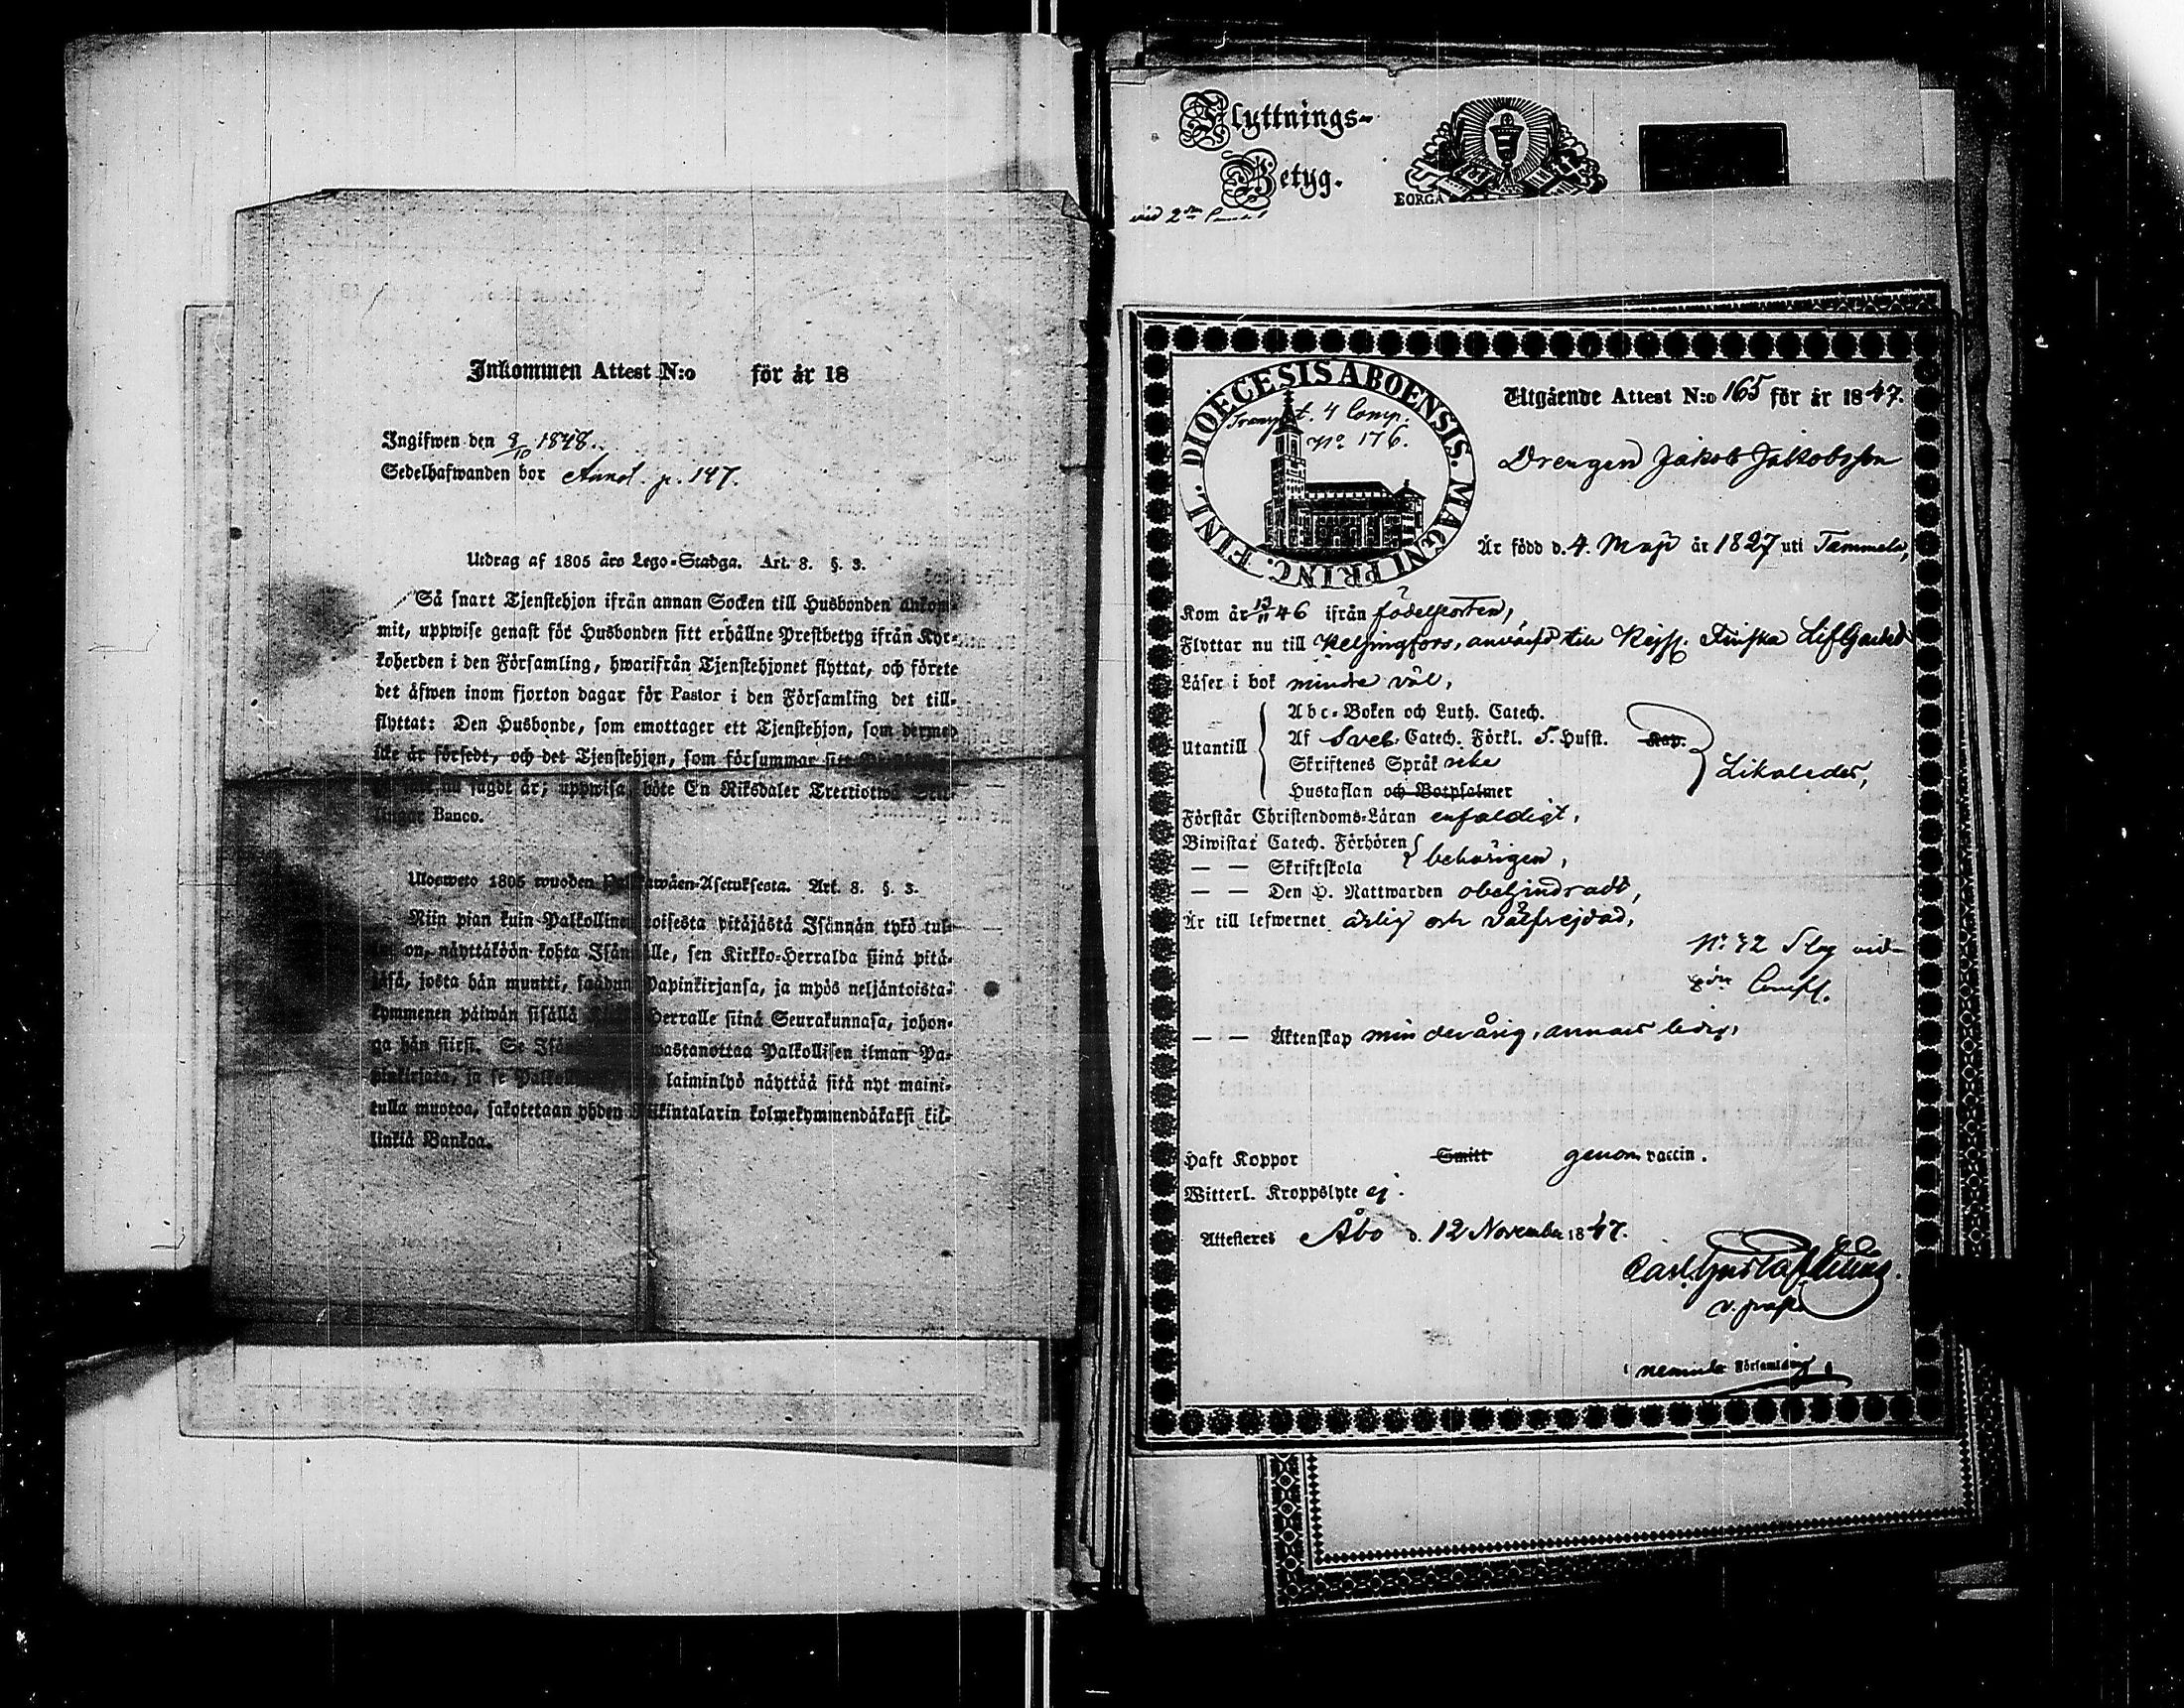 Inkommen Attest N:o för år 18
Ingifwen den 8/10 1848.
Sedelhafwanden bor Annot. p. 147.
Utdrag af 1805 års Lego-Stadga. Art. 8. §. 3.
Så snart Tjenstehjon ifrån annan Socken till Husbonden ankom-
mit, uppwise genast för Husbonden sitt erhållne Prestbetyg ifrån Kyr-
koherden i den Församling, hwarifrån Tjenstehjonet flyttat, och förete
det äfwen inom fjorton dagar för Pastor i den Församling det till-
flyttat: Den Husbonde, som emottager ett Tjenstehjon, som dermed
icke är försedt, och det Tjenstehjon, som försummar sitt
nu sagdt är, uppwisa, böte En Riksdaler Trettiotwå Skil-
lingar Banco.
Ulosweto 1805 wuoden Asetuksesta. Art. 8. §. 3.
Niin pian kuin Palkollinen toisesta pitäjästä Isännän tykö tul-
on, näyttäköön kohta Isännälle, sen Kirkko-Herralda siinä pitä-
jäsä, josta hän muutti, saadun Papinkirjansa, ja myös neljäntoista-
kymmenen päiwän sisällä Herralle siinä Seurakunnasa, johon-
ga hän siirsi. Se Isändä wastanottaa Palkollisen ilman Pa-
pinkirjata, ja se laiminlyö näyttää sitä nyt maini-
tulla muotoa, sakotetaan yhden Riikintalarin kolmekymmendäkaksi kil-
linkiä Bankoa.
Flyttnings-
Betyg.
vid 2
BORGÅ
DIOECESIS ABOENSIS. MAGNI PRINC. FINL.
Transp. t. 4 Comp.
No 176.
Utgående Attest N:o 165 för år 1847.
Drengen Jakob Jakobsson
Är född d. 4. Maji år 1827 uti Tammela,
Kom år 13/11 46 ifrån födelseorten,
Flyttar nu till Helsingfors, anvärfd till Kejs. Finska Lif Gardet
Läser i bok mindre väl,
Utantill
Abc-Boken och Luth. Catech.
Af Sveb. Catech. Förkl. 5. Hufst. Kap.
Skriftenes Språk icke
Hustaflan och Botpsalmer
Likaledes,
Förstår Christendoms-Läran enfaldigt,
Biwistat Catech. Förhören
— — Skriftskola behörigen,
— — Den H. Nattwarden obehindradt,
Är till lefwernet ärlig och välfrejdad,
No 72 Slog vid
Comp.
— — Äktenskap minderårig, annars ledig,
Haft Koppor Smitt genom vaccin.
Witterl. Kroppslyte ej.
Attesteres Åbo d. 12 November 1847.
Carl Gustaf
v. past.
Församling